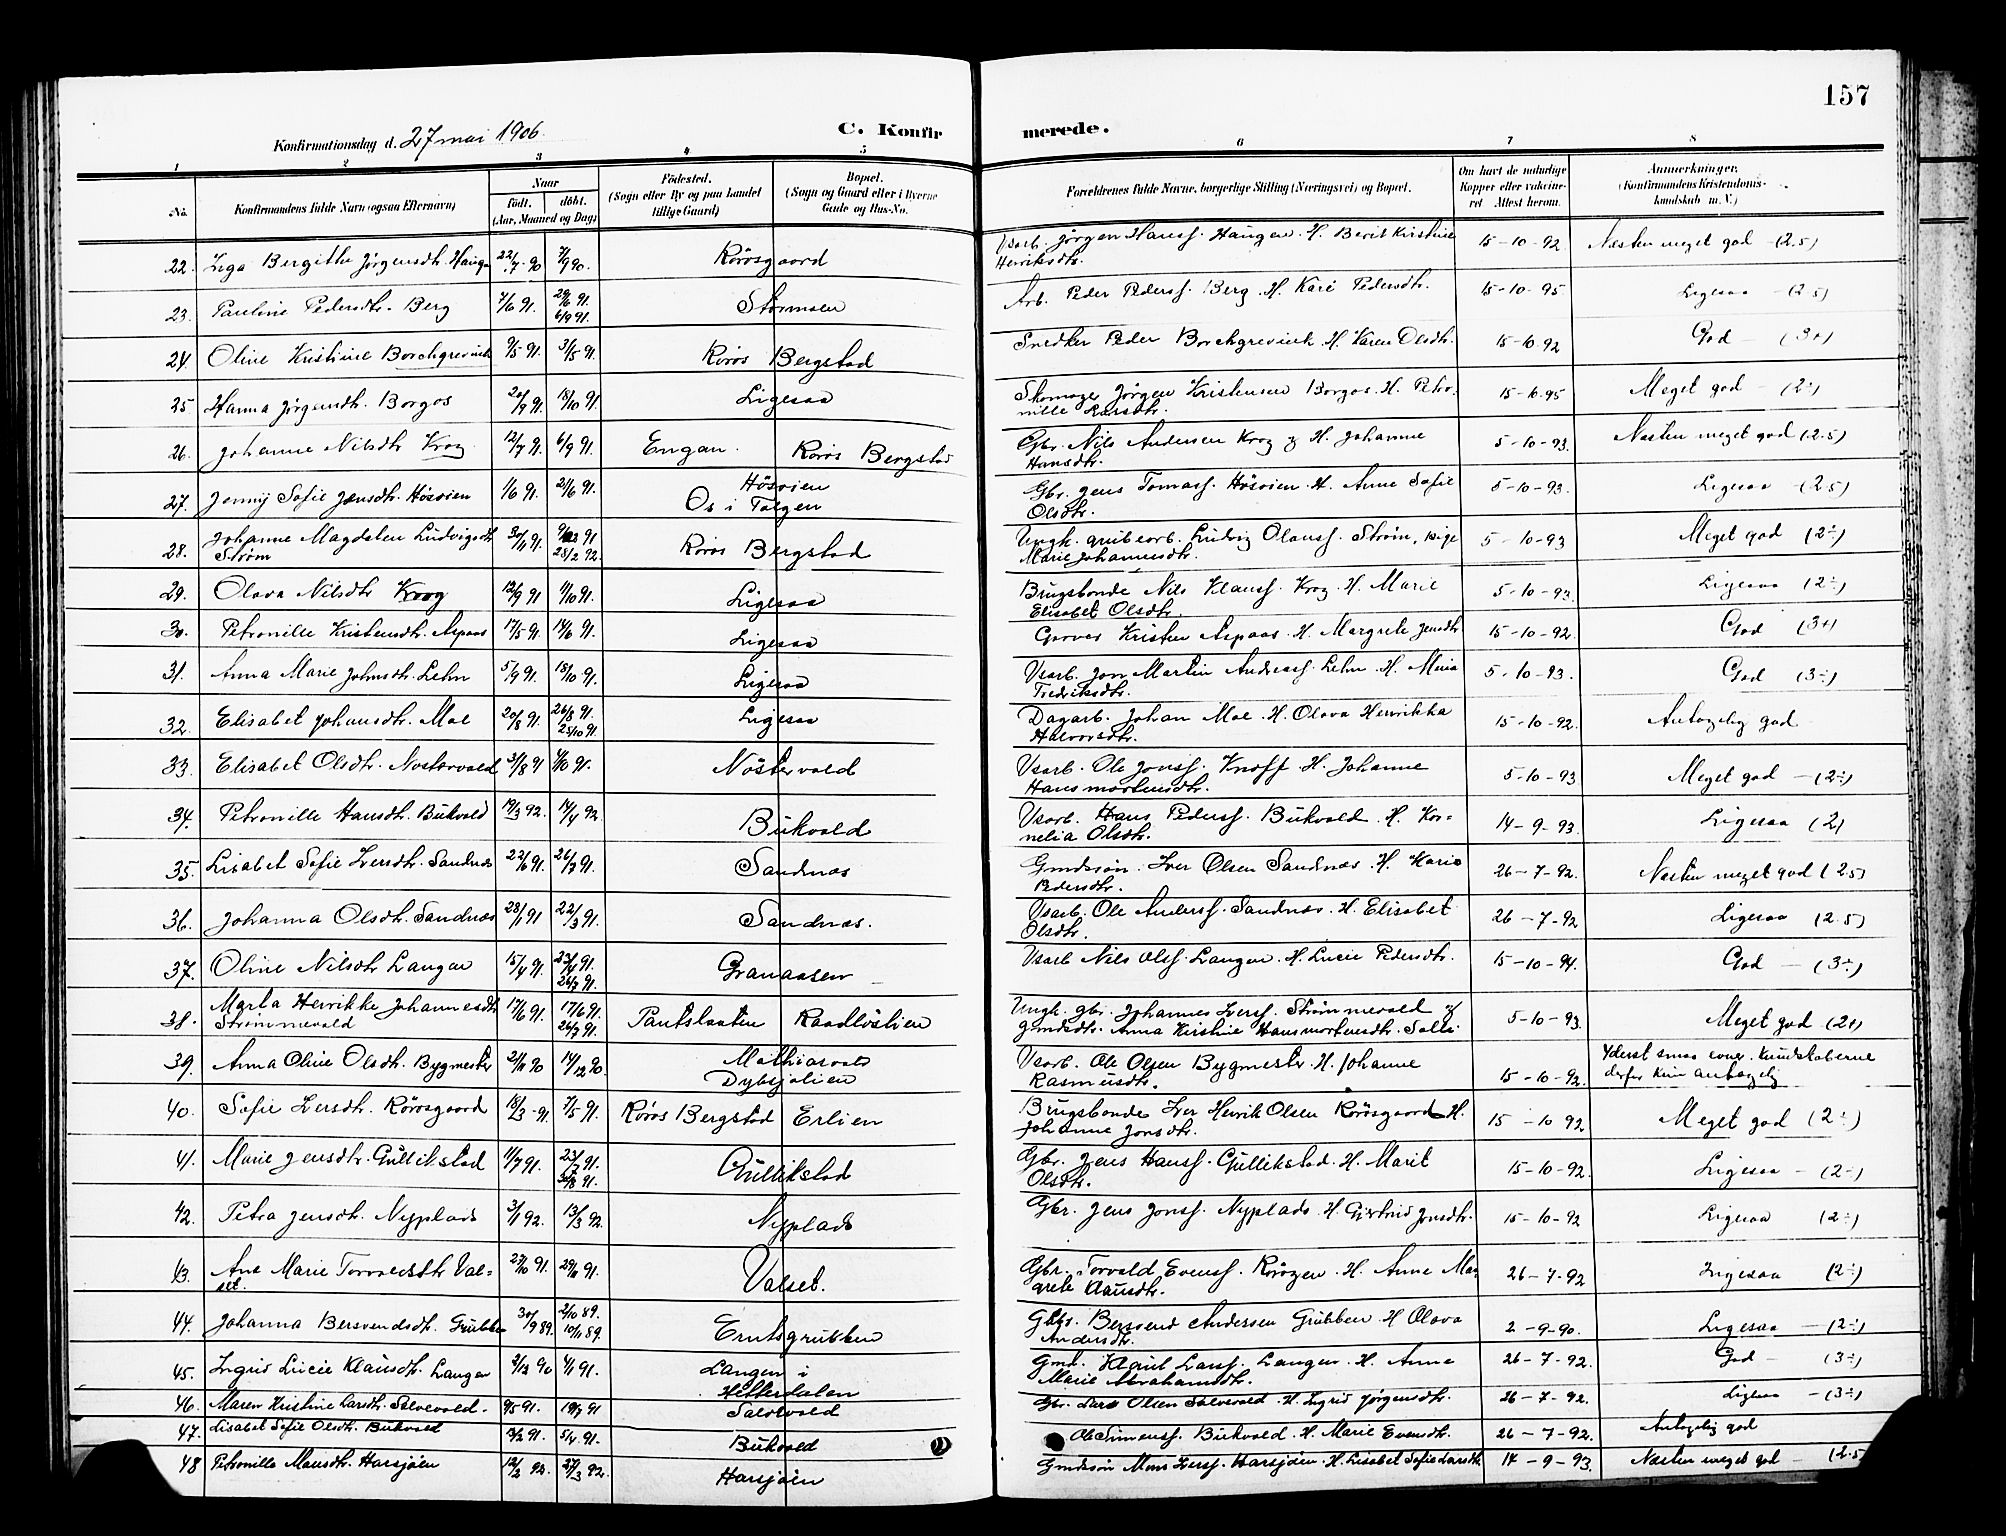 157
Konfirmationsdag d. 27 mai 1906.
C. Konfir merede.
1 2 3 4 5 6 7 8
No.
Konfirmandens fulde Navn (ogsaa Efternavn)
Naar
födt. döbt.
(Aar, Maaned og Dag)
Födested.
(Sogn eller By og paa Landet
tillige Gaard)
Bopæl.
(Sogn og Gaard eller i Byerne
Gade og Hus-No.
Forældrenes fulde Navne, borgerlige Stilling (Næringsvei) og Bopæl.
Om havt de naturlige
Kopper eller vaksine-
ret Attest herom.
Anmerkninger.
(Konfirmandens Kristendoms-
kundskab m. V.)
22. Inga Bergithe Jørgensdtr. Haugen 22/7-90 7/9 90. Rørosgaard Vsarb. Jørgen Hansf. Haugen. H. Berit Kirstine Henriksdtr. 15-10-92. Næsten meget god - (2.5)
23. Pauline Pedersdtr. Berg 7/6 91. 29/6 91. 6/9 91. Stormoen Arb. Peder Pedersf. Berg. H. Kari Pedersdtr. 15-10-95. Ligesaa (2.5)
24. Oline Kristine Borchgrevink 9/5 91. 31/5 91. Røros Bergstad Snedker Peder Borchgrevink. H. Karen Olsdtr. 15-10.92 God - (3+)
25 Hanna Jørgensdtr. Borgos 20/9 91. 18/10 91. Ligesaa Skomager Jørgen Kristensen Borgos. H. Petronille Larsdtr. 15-10.95 Meget god - (2÷)
26. Johanne Nilsdtr Krog 12/7 91. 6/9 91. Engan. Røros Bergstad Gbr. Nils Andersen Krog & H. Johanne Hansdtr. 5-10-93. Næsten meget god (2.5)
27. Jenny Sofie Jensdtr. Høsøien 1/6 91. 21/6 91. Høsøien Os i Tolgen Gbr. Jens Tomasf. Høsøien. H. Anne Sofie Olsdtr. 5-10-93. Ligesaa - (2.5)
28. Johanne Magdalen Ludvigsdtr. Strøm 30/11 91. 28/2 92. Røros Bergstad Ungk. grubearb. Ludvig Olausf. Strøm, Pige Marie Johannesdtr. 5-10-93 Meget god (2÷)
29. Olava Nilsdtr Krog 12/9 91 11/10 91. Ligesaa Brugsbonde Nils Klausf. Krog. H. Marie Elisabet Olsdtr. 5-10-93. Ligesaa (2÷)
30. Petronille Kristensdtr. Aspaas 17/5 91. 14/6 91. Ligesaa Garver Kristen Aspaas. H. Margrete Jensdtr 15-10-92. God (3+)
31. Anna Marie Johnsdtr. Lehn 5/9 91. 18/10 91. Ligesaa Vsarb. Jon Martin Andreasf. Lehn. H. Maria Fredriksdtr. 5-10-93. God (3÷)
32. Elisabet Johansdtr. Moe 20/8 91. 26/8 91. 25/10 91. Ligesaa Dagarb. Johan Moe. H. Olava Henrikka Halvorsdtr. 15-10-92. Antagelig god
33. Elisabet Olsdtr. Nøstervold 31/8 91 4/10 91. Nøstervold Vsarb. Ole Jonsf. Knoff. H. Johanne Hansmortensdtr. 5-10-93 Meget god - (2÷)
34. Petronille Hansdtr. Bukvold 19/3 92. 14/4 92. Bukvold Vsarb. Hans Pedersf. Bukvold. H. Kornelia Olsdtr. 14-9-93. Ligesaa (2)
35. Lisabet Sofie Iversdtr. Sandnæs 22/6 91. 26/7 91. Sandnæs Gmdssøn. Iver Olsen Sandnæs. H. Marie Pedersdtr. 26-7-92. Næsten meget god (2.5)
36. Johanna Olsdtr. Sandnæs 28/1 91 22/3 91. Sandnæs. Vsarb. Ole Andersf. Sandnæs. H. Elisabet Olsdtr. 26-7-92 Ligesaa (2.5)
37. Oline Nilsdtr Langen 15/4 91. 23/4 91. 26/7 91. Granaasen Vsarb Nils Olsf. Langen. H. Lucie Pedersdtr. 15-10-94. God - (3÷)
38. Marta Henrikke Johannesdtr Strømmevold 17/6 91. 17/6 91. 26/7 91. Pantslaaten Raadløslien Ungk. gbr. Johannes Iversf. Strømmevold og gmdsdtr. Anna Kirstine Hansmortensdtr. 5-10-93. Meget god (2+)
39. Anna Oline Olsdtr. Bygmester 2/11 90 14/12 90. Mathiasvold Dybsjølien Vsarb. Ole Olsen Bygmester. H. Johanne Rasmusdtr. 15-10-92. Yderst smaa evner. Kundskaberne derfor kun antagelig
40. Sofie Iversdtr. Rørosgaard 18/3-91. 7/5 91. Røros Bergstad Erlien Brugsbonde Iver Henrik Olsen Rørosgaard H. Johanne Jonsdtr. 15-10 92. Meget god (2÷)
41. Marie Jensdtr. Gullikstad 11/7 91. 23/7 91. 30/8 91. Gullikstad Gbr. Jens Hansf. Gullikstad. H. Marit Olsdtr. 15-10-92. Ligesaa - (2÷)
42. Petra Jensdtr. Nyplads 3/1 92. 13/3 92. Nyplads Gbr. Jens Jonsf. Nyplads. H. Gjertrud Jonsdtr. 15-10-92 Ligesaa (2÷)
43. Ane Marie Torvaldsdtr Valset. 23/10 91. 29/11 91. Valset. Gbr. Torvald Evensf. Rørgen. H. Anne Margrete Clausdtr. 26-7-92 Ligesaa (2÷)
44. Johanna Bersvendsdtr. Grubben 30/9 89. 2/10 89. 10/11 89. Erntsgrubben Gbr. Bersvend Andersen Grubben H Olava Andersdtr. 2-9-90. Ligesaa - (2÷)
45. Ingrid Lucie Klausdtr. Langen 2/12 90 4/1 91. Langen i Hitterdalen Gmd. Klaus Larsf. Langen. H. Anne Marie Abrahamsdtr. 26-7-92. God - (3÷)
46. Maren Kristine Larsdtr. Solvevold. 9/5 91. 19/7 91 Solvevold Gbr. Lars Olsen Solvevold. H. Ingrid Jørgensdtr. 26-7-92. Ligesaa - (3÷)
47. Lisabet Sofie Olsdtr. Bukvold 13/2 91. 5/4 91. Bukvold Ole Simensf. Bukvold. H. Marie Evensdtr. 26-7-92. Antagelig god
48 Petronille Monsdtr. Harsjøen 12/3 92. 27/3 92. Harsjøen Gmdssøn Mons Iversf. Harsjøen. H. Lisabet Sofie Larsdtr 14-9-93. Næsten meget god - (2.5)